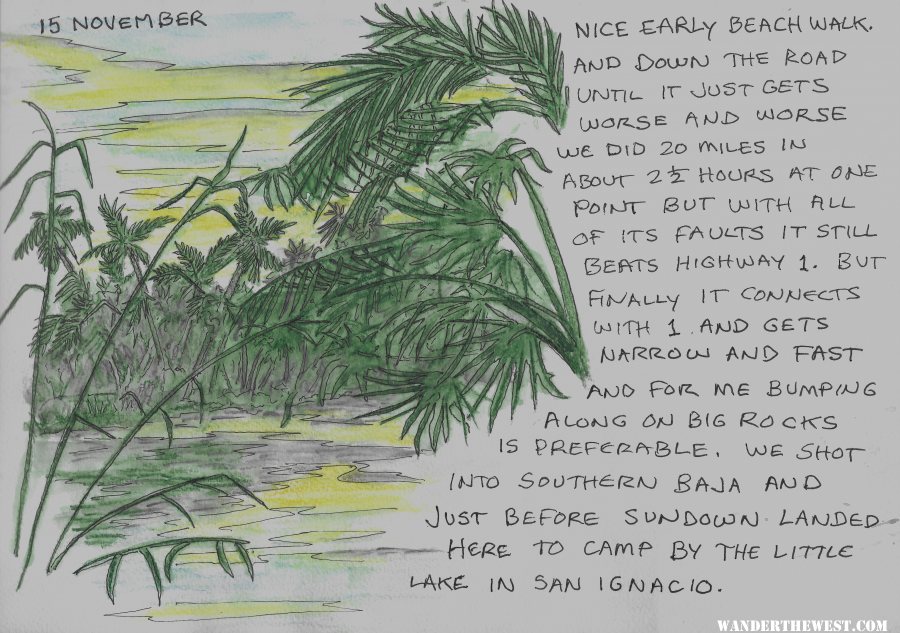 15 NOVEMBER
NICE EARLY BEACH WALK.
AND DOWN THE ROAD
UNTIL IT JUST GETS
WORSE AND WORSE
WE DID 20 MILES IN
ABOUT 2½ HOURS AT ONE
POINT BUT WITH ALL
OF ITS FAULTS IT STILL
BEATS HIGHWAY 1. BUT
FINALLY IT CONNECTS
WITH 1 AND GETS
NARROW AND FAST
AND FOR ME BUMPING
ALONG ON BIG ROCKS
IS PREFERABLE. WE SHOT
INTO SOUTHERN BAJA AND
JUST BEFORE SUNDOWN LANDED
HERE TO CAMP BY THE LITTLE
LAKE IN SAN IGNACIO.
WANDERTHEWEST.COM